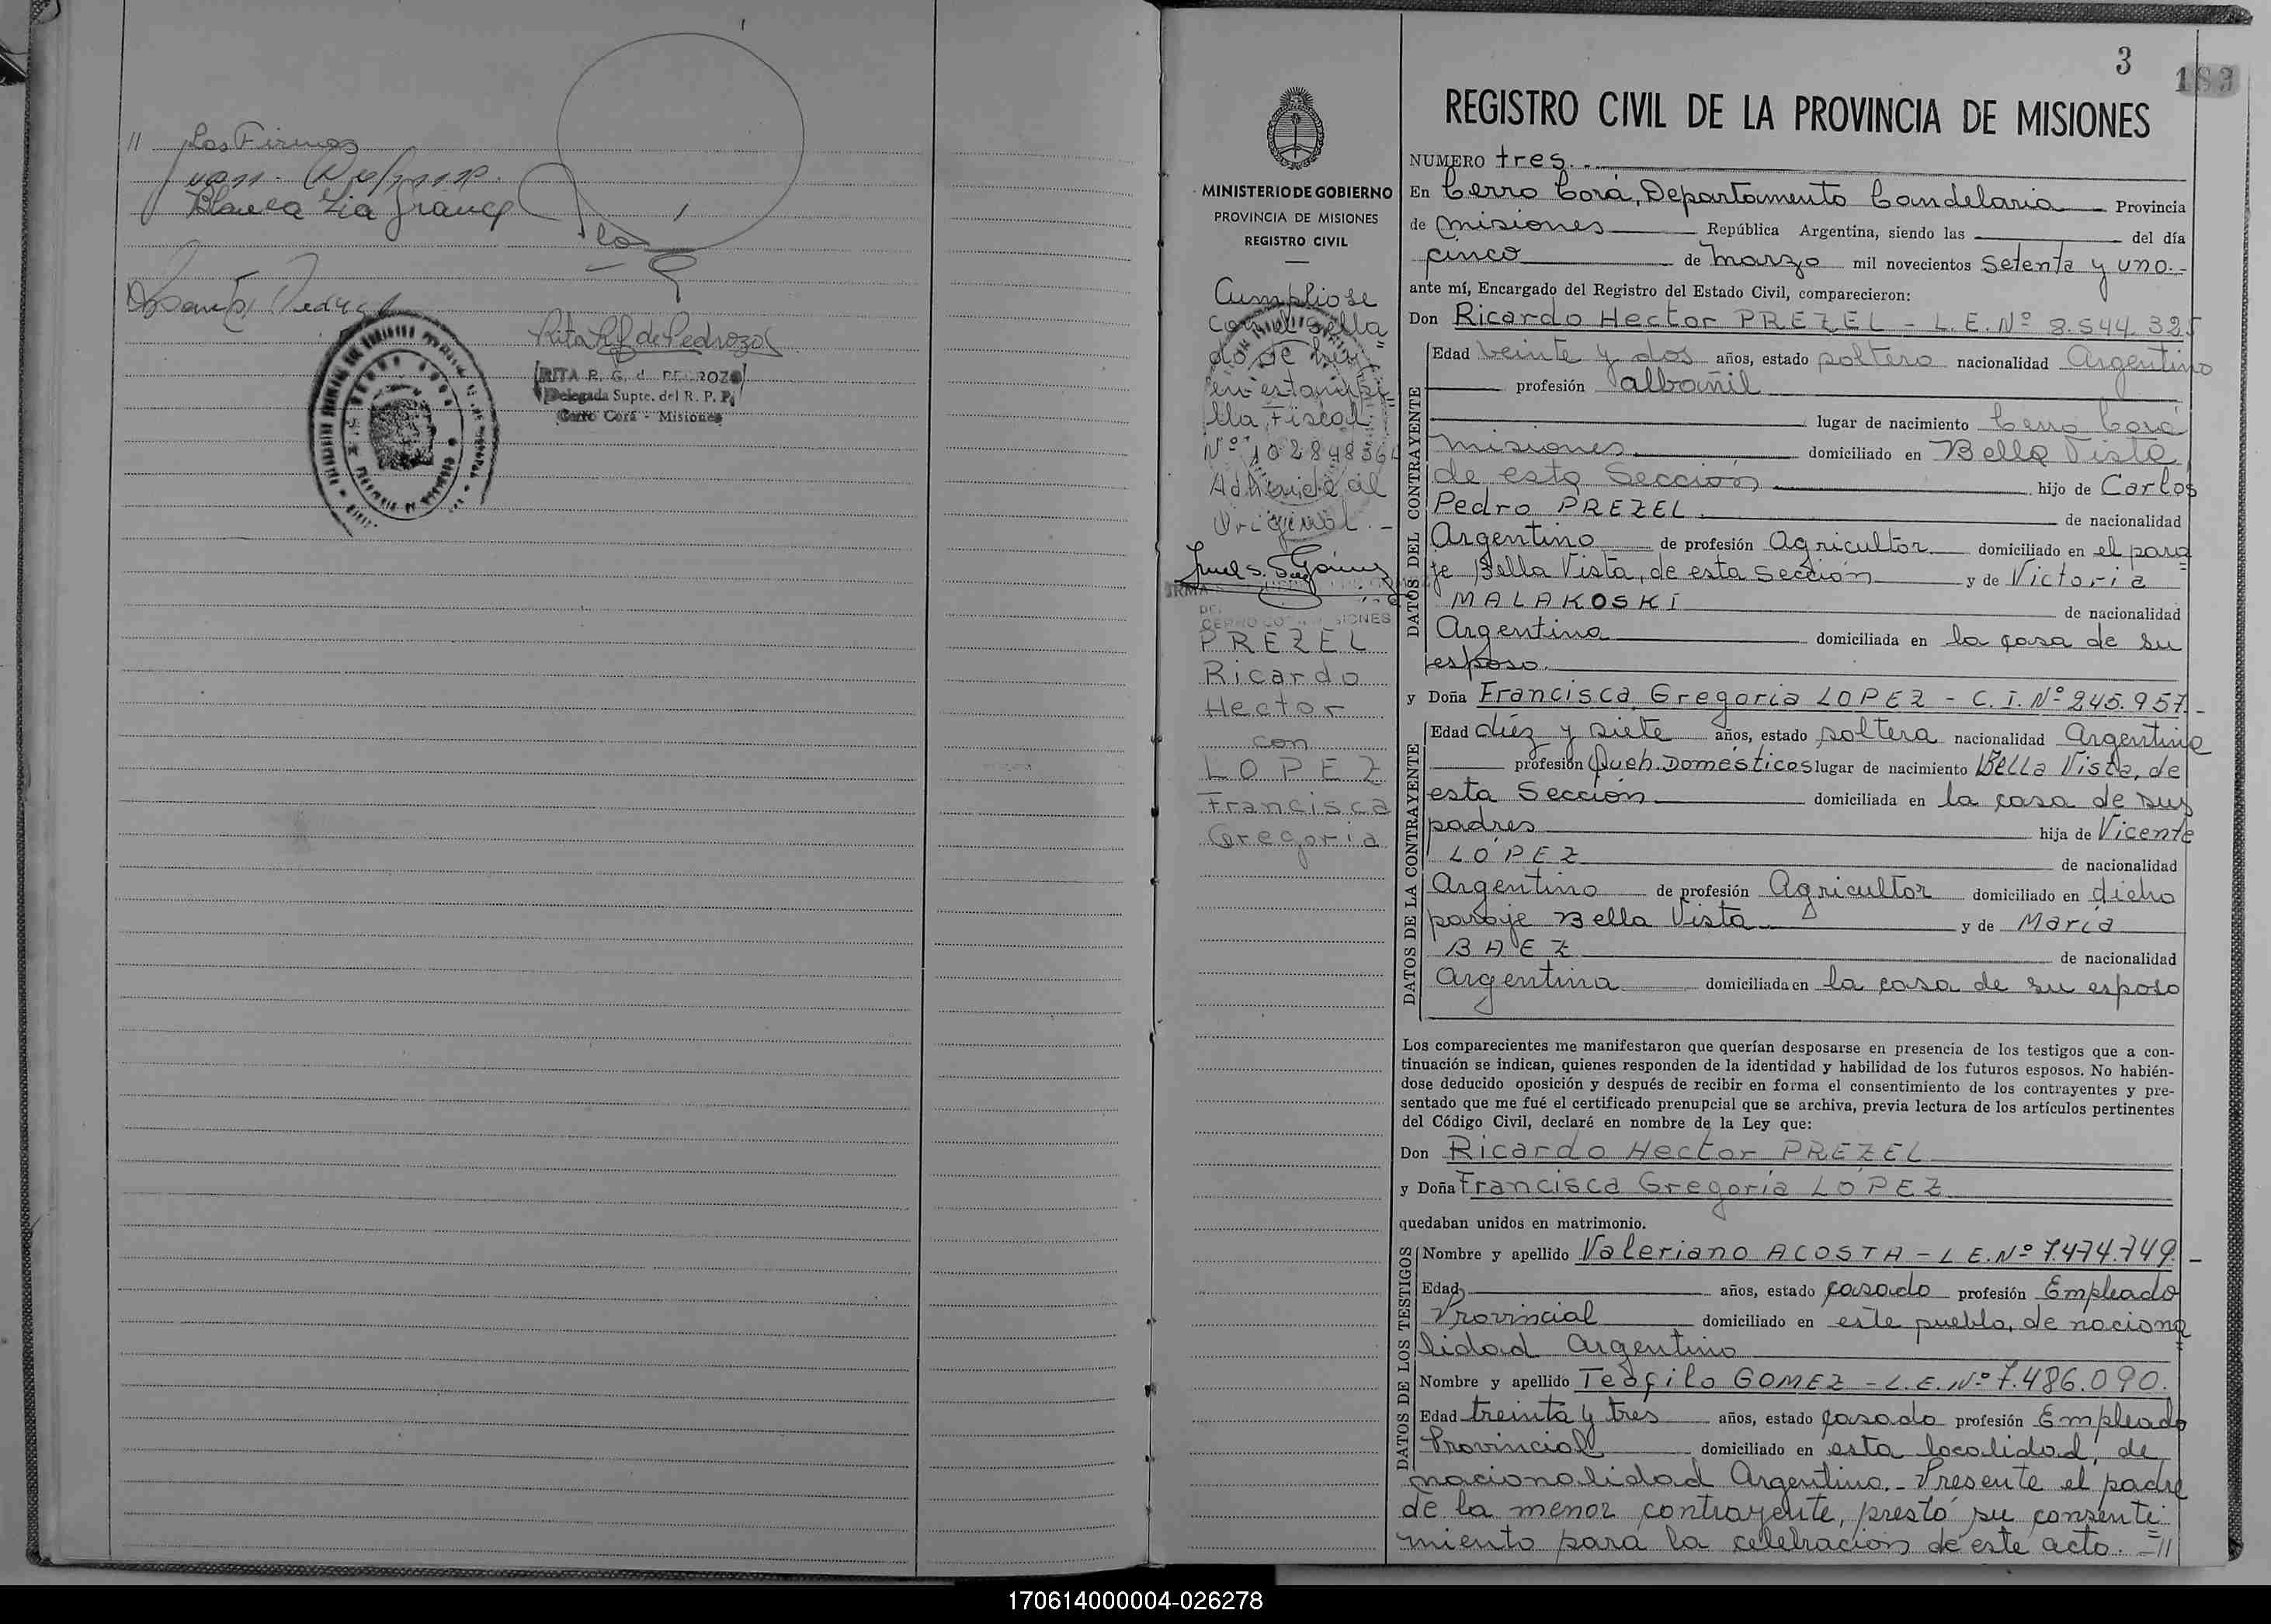 // Las Firmas
Blanca Lia Franco
Rita R G de Pedrozo
RITA R. G. d PEDROZO
Delegada Supte. del R. P. P.
Cerro Corá - Misiones
3
183
REGISTRO CIVIL DE LA PROVINCIA DE MISIONES
MINISTERIO DE GOBIERNO
PROVINCIA DE MISIONES
REGISTRO CIVIL
Cumpliose
con el sella
do de ley
en estampi
lla Fiscal
Nº 10284836
Adherida al
Original.-
PREZEL
Ricardo
Hector
con
LOPEZ
Francisca
Gregoria
NUMERO tres.--
En Cerro Corá, Departamento Candelaria Provincia
de Misiones República Argentina, siendo las del día
cinco de Marzo mil novecientos Setenta y uno.-
ante mí, Encargado del Registro del Estado Civil, comparecieron:
Don Ricardo Hector PREZEL - L.E. Nº 8.544.325
DATOS DEL CONTRAYENTE
Edad veinte y dos años, estado soltero nacionalidad Argentino
profesión albañil
lugar de nacimiento Cerro Corá
Misiones domiciliado en Bella Vista,
de esta Sección hijo de Carlos
Pedro PREZEL de nacionalidad
Argentino de profesión Agricultor domiciliado en el para=
je Bella Vista, de esta sección y de Victoria
MALAKOSKI de nacionalidad
Argentina domiciliada en la casa de su
esposo.
y Doña Francisca Gregoria LOPEZ - C.I. Nº 245.957.-
DATOS DE LA CONTRAYENTE
Edad diéz y siete años, estado soltera nacionalidad Argentina
profesión Queh. Domésticos lugar de nacimiento Bella Vista, de
esta Sección domiciliada en la casa de sus
padres hija de Vicente
LOPEZ de nacionalidad
Argentino de profesión Agricultor domiciliado en dicho
paraje Bella Vista y de María
BAEZ de nacionalidad
Argentina domiciliada en la casa de su esposo
Los comparecientes me manifestaron que querían desposarse en presencia de los testigos que a con-
tinuación se indican, quienes responden de la identidad y habilidad de los futuros esposos. No habién-
dose deducido oposición y después de recibir en forma el consentimiento de los contrayentes y pre-
sentado que me fué el certificado prenupcial que se archiva, previa lectura de los artículos pertinentes
del Código Civil, declaré en nombre de la Ley que:
Don Ricardo Hector PREZEL
y Doña Francisca Gregoria LOPEZ
quedaban unidos en matrimonio.
DATOS DE LOS TESTIGOS
Nombre y apellido Valeriano ACOSTA - L.E. Nº 7.474.749.-
Edad años, estado casado profesión Empleado
Provincial domiciliado en este pueblo, de naciona=
lidad Argentino
Nombre y apellido Teófilo GOMEZ - L.E. Nº 7.486.090.
Edad treinta y tres años, estado casado profesión Empleado
Provincial domiciliado en esta localidad, de
nacionalidad Argentino.- Presente el padre
de la menor contrayente, prestó su consenti=
miento para la celebración de este acto.-//
170614000004-026278